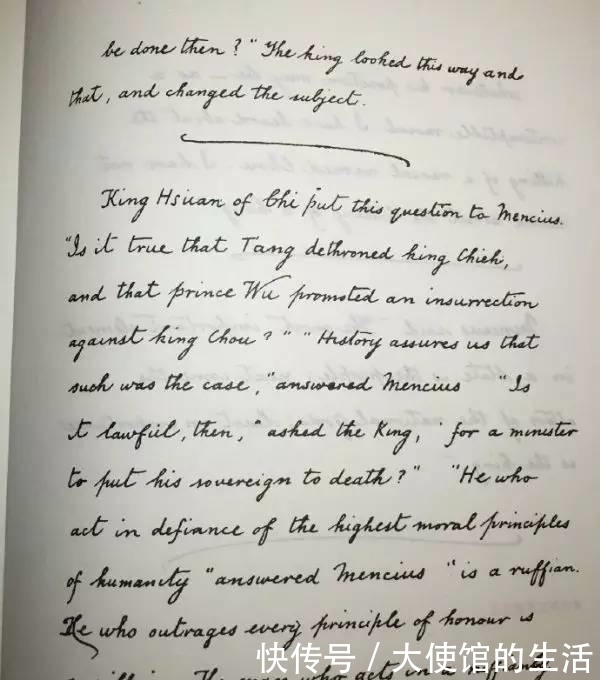 be done then?" The king looked this way and
that, and changed the subject.
King Hsüan of Chi put this question to Mencius.
"Is it true that T'ang dethroned king Chieh,
and that prince Wu promoted an insurrection
against king Chou?" "History assures us that
such was the case," answered Mencius "Is
it lawful, then," asked the King, "for a minister
to put his sovereign to death?" "He who
act in defiance of the highest moral principles
of humanity" answered Mencius "is a ruffian.
He who outrages every principle of honour is
The man who acts in a ruffianly
快传号 / 大使馆的生活